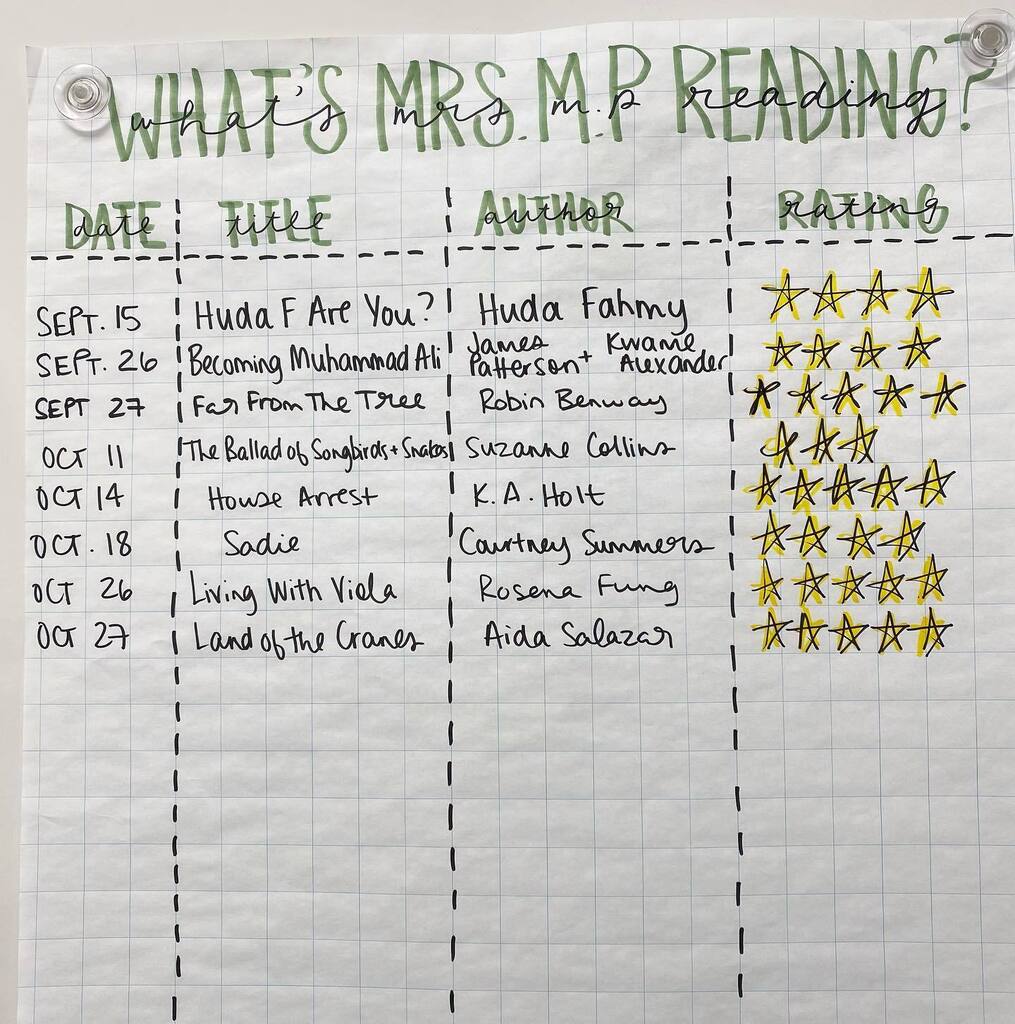 WHAT'S MRS. M.P READING?
what's mrs m.p reading?
DATE TITLE AUTHOR RATING
date title author rating
SEPT. 15 Huda F Are You? Huda Fahmy
SEPT. 26 Becoming Muhammad Ali James Patterson + Kwame Alexander
SEPT 27 Far From The Tree Robin Benway
OCT 11 The Ballad of Songbirds + Snakes Suzanne Collins
OCT 14 House Arrest K.A. Holt
OCT. 18 Sadie Courtney Summers
OCT 26 Living With Viola Rosena Fung
OCT 27 Land of the Cranes Aida Salazar